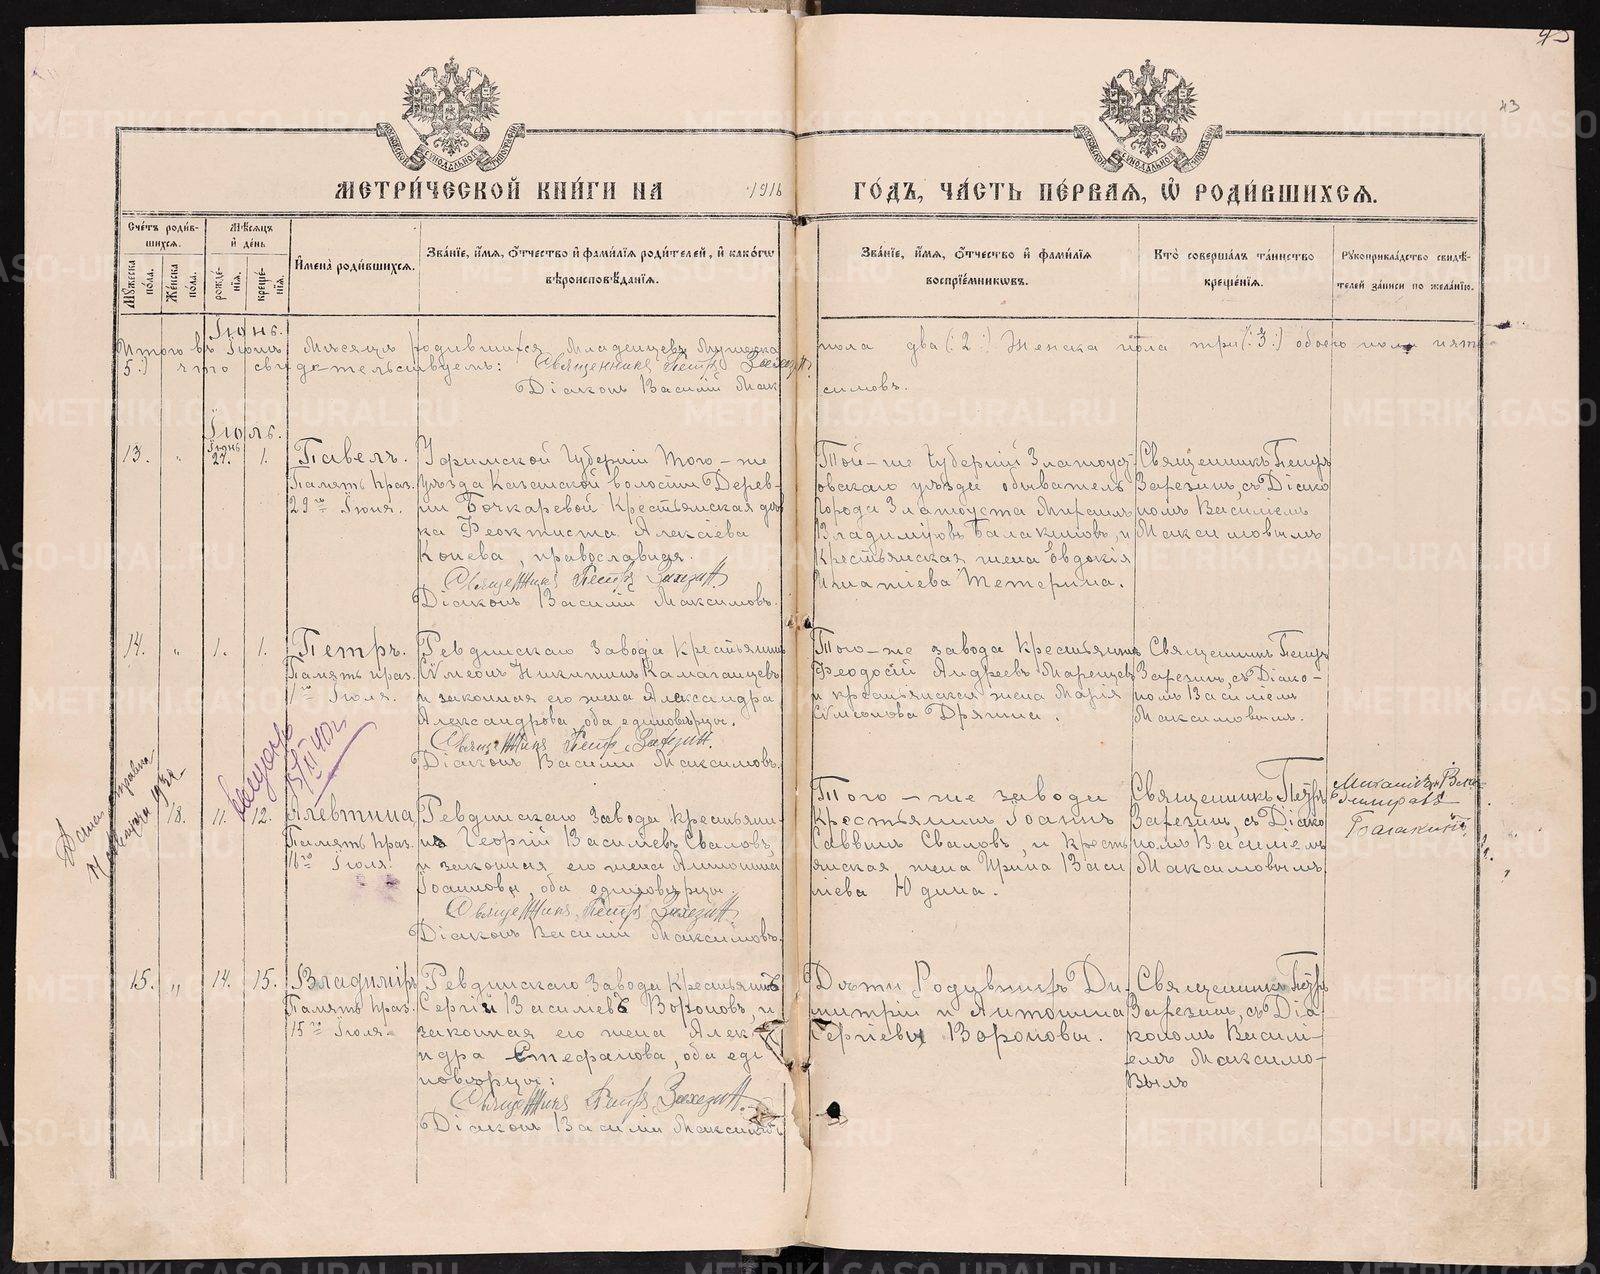 43
МЕТРИ́ЧЕСКОЙ КНИ́ГИ НА 1916 ГО́ДЪ, ЧА́СТЬ ПЕ́РВАЯ, Ѡ РОДИ́ВШИХСЯ.
Сче́тъ роди́вшихся.
Мꙋ́жеска по́ла.
Же́нска по́ла.
Мѣ́сяцъ и҆ де́нь
рожде́нїя.
креще́нїя.
И҆мена̀ роди́вшихся.
Зва́нїе, и҆́мя, ѻ҆́тчество и҆ фами́лїя роди́телей, и҆ како́гѡ вѣроисповѣ́данїя.
Зва́нїе, и҆́мя, ѻ҆́тчество и҆ фами́лїя воспрїе́мникѡвъ.
Кто̀ соверша́лъ та́инство креще́нїя.
Рꙋкоприкла́дство свидѣ́телей за́писи по жела́нїю.
Іюнь.
Итого въ Іюнѣ Мѣсяцѣ родившихся Младенцевъ Мужеска пола два (:2:) Женска пола три (:3:) обоего пола пять
5:) что свидѣтельствуемъ: Священникъ Петръ
Діаконъ Василій Максимовъ.
Іюль.
13. " Іюнь 27. 1.
Павелъ.
Память праз.
29го Іюня.
Уфимской Губерніи того-же
уѣзда Казанской волости Дерев-
ни Бочкаревой Крестьянская дѣв
ка Феоктиста Алексіева
Конева, православная.
Священникъ Петръ
Діаконъ Василій Максимовъ.
Той-же Губерніи Златоуст
овскаго уѣзда обыватель
Города Златоуста Михаилъ
Владиміровъ Балакинъ, и
Крестьянская жена Евдокія
Игнатіева Тетерина.
Священникъ Петръ
съ Діако
номъ Василіемъ
Максимовымъ
14. " 1. 1.
Петръ.
Память праз.
1го Іюля.
Ревдинскаго Завода Крестьянинъ
Сумеонъ Никитинъ
и законная его жена Александра
Александрова, оба единовѣрцы.
Священникъ Петръ
Діаконъ Василій Максимовъ.
Того-же завода Крестьянинъ
Феодосій Андреевъ
и крестьянская жена Марія
Сумеонова Дрягина.
Священникъ Петръ
съ Діако-
номъ Василіемъ
Максимовымъ.
Дана справка
1932
18. 11. 12.
Алевтина
Память праз.
16го Іюля.
Ревдинскаго Завода Крестьяни-
нъ Георгій Василіевъ Сваловъ,
и законная его жена Антонина
Іоаннова, оба единовѣрцы.
Священникъ Петръ
Діаконъ Василій Максимовъ.
Того-же завода
Крестьянинъ Іоаннъ
Саввинъ Сваловъ, и кресть
янская жена Ирина Васи
ліева Юдина.
Священникъ Петръ
съ Діако
номъ Василіемъ
Максимовымъ
15. " 14. 15.
Владиміръ
Память праз.
15го Іюля.
Ревдинскаго Завода Крестьянинъ
Сергій Василіевъ Вороновъ, и
законная его жена Алекса
ндра Стефанова, оба еди
новѣрцы:
Священникъ Петръ
Діаконъ Василій Максимовъ
Дѣти Родившихъ Ди-
митрій и Антонина
Сергіевы Вороновы.
Священникъ Петръ
съ Діа-
кономъ Василі-
емъ Максимо-
вымъ